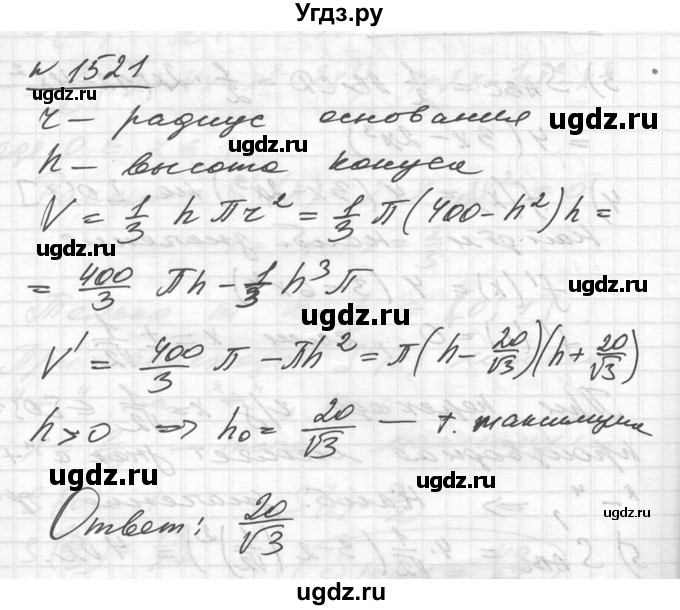 Угдз.ру
№ 1521
ugdz.ru ugdz.ru
r – радиус основания
h – высота конуса
V = 1/3 h πr² = 1/3 π(400 - h²)h =
ugdz.ru
= 400/3 πh - 1/3 h³π
ugdz.ru
V' = 400/3 π - πh² = π(h - 20/√3)(h + 20/√3)
h > 0 ⇒ h₀ = 20/√3 – т. максимума
ugdz.ru ugdz.ru
Ответ: 20/√3
ugdz.ru
ugdz.ru